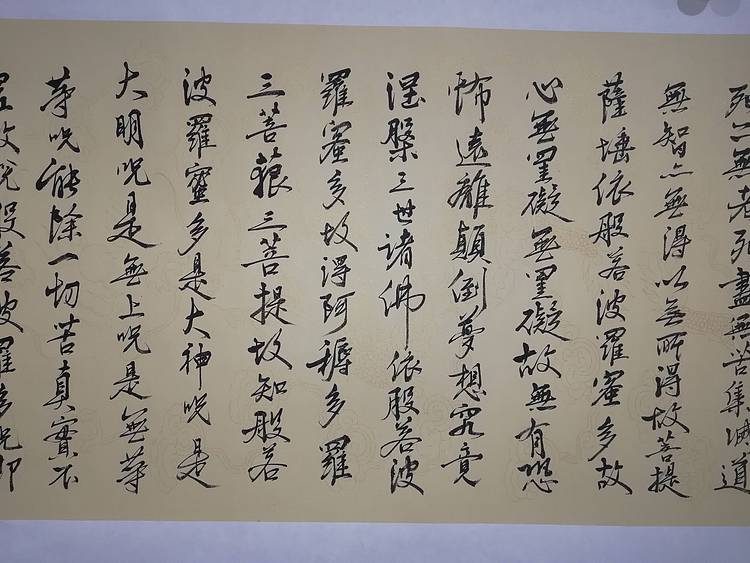 死亦無老死盡無苦集滅道
無智亦無得以無所得故菩提
薩埵依般若波羅蜜多故
心無罣礙無罣礙故無有恐
怖遠離顛倒夢想究竟
涅槃三世諸佛依般若波
羅蜜多故得阿耨多羅
三菩藐三菩提故知般若
波羅蜜多是大神呪是
大明呪是無上呪是無等
等呪能除一切苦真實不
虛故說般若波羅多呪即